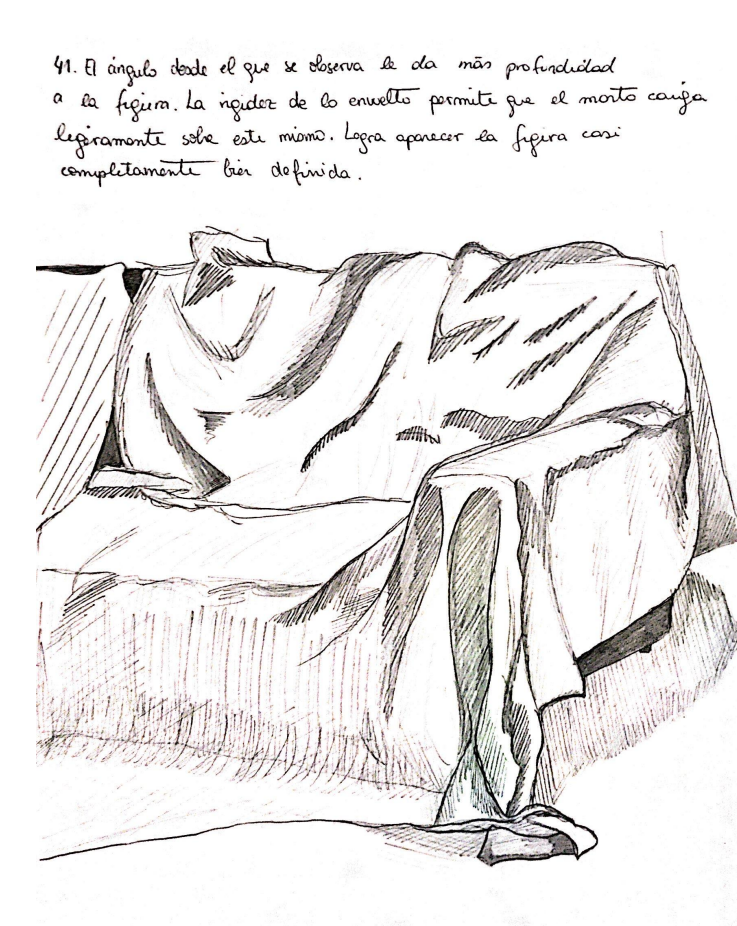 41. El ángulo desde el que se observa le da más profundidad
a la figura. La rigidez de lo envuelto permite que el manto caiga
ligeramente sobre este mismo. Logra aparecer la figura casi
completamente bien definida.